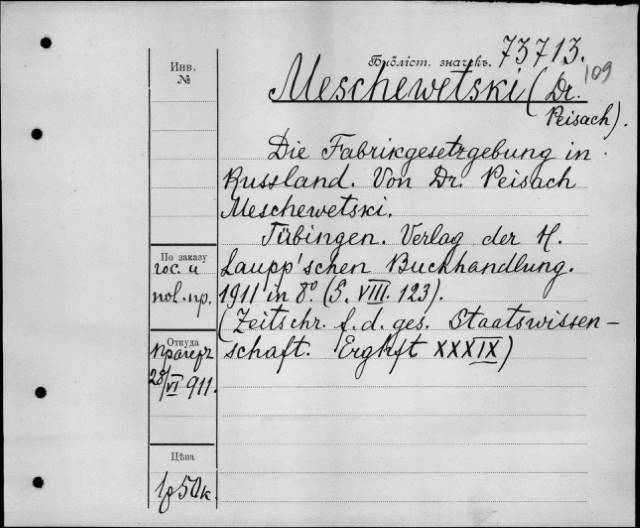 Библіот. значекъ. 73713.
109
Инв.
№
Meschewetski (Dr.
Peisach).
Die Fabrikgesetzgebung in
Russland. Von Dr. Peisach
Meschewetski.
Tübingen. Verlag der H.
Laupp'schen Buchhandlung.
1911 in 8º. (S. VIII. 123).
(Zeitschr. f. d. ges. Staatswissen-
schaft. Erghft XXXIX)
По заказу
гос. и
pol. пр.
Откуда
28/VI 911.
Цѣна
1р 50к.